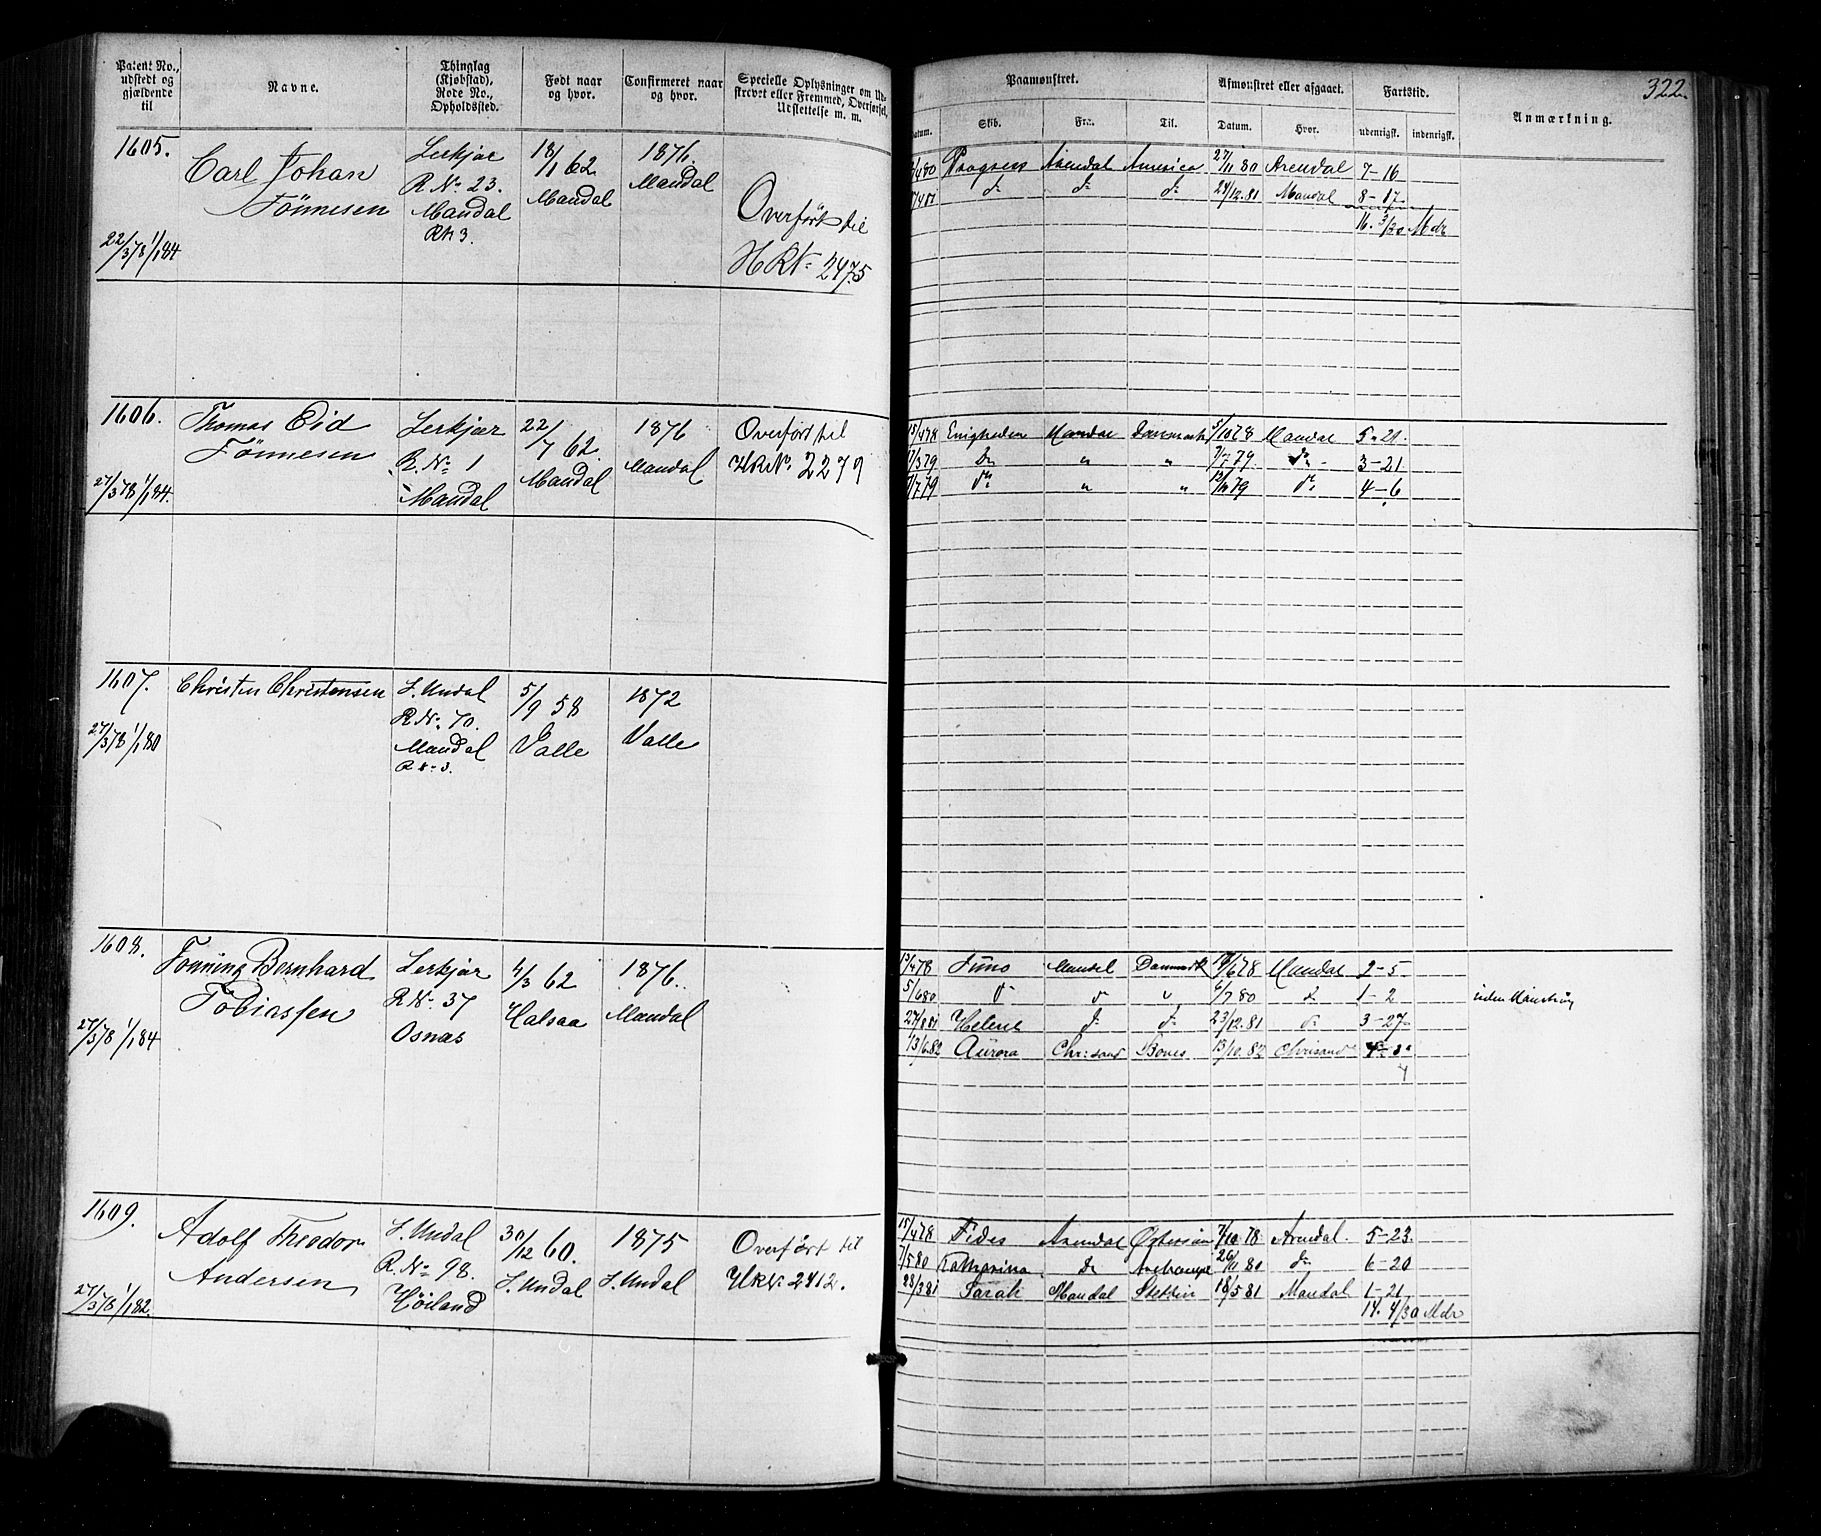 Patent No., udstedt og gjældende til
Navne.
Thinglag (Kjøbstad), Rode No., Opholdssted.
Født naar og hvor.
Confirmeret naar og hvor.
Specielle Oplysninger om Udskrevet eller Fremmed, Overførsel, Udslettelse m. m.
Paamønstret.
Datum.
Skib.
Fra.
Til.
Afmønstret eller afgaaet.
Datum.
Hvor.
Fartstid.
udenrigsk.
indenrigsk.
Anmærkning.
322.
1605.
22/3 78 1/1 84
Carl Johan
Tönnesen
Lerkjær
R No 23.
Mandal
R N 3.
18/1 62.
Mandal
1876.
Mandal
Overført til
HRN 2475
Arendal America 27/11 80 Arendal 7-16
d d d 24/12. 81 Mandal 8-17
16. 3/30 Mdr
1606.
27/3 78 1/1 84.
Thomas Eid
Tönnesen
Lerkjær
R. No 1
Mandal
22/7 62.
Mandal
1876
Mandal
Overført til
HRN. 2279
15/4 78 Enigheden Mandal Danmark 5/10 78 Mandal 5-21.
1/3 79 Do " " 7/7 79. do 3-21
7/7 79 do " " 12/11 79 do 4-6
1607.
27/3 78 1/1 80
Christen Christensen
S. Undal
R No 70.
Mandal
R N 3.
5/9 58
Valle
1872
Valle
1608.
27/3 78 1/1 84
Tönning Bernhard
Tobiassen
Lerkjær
R No 37
Osnæs
4/3 62
Halsaa
1876.
Mandal
15/4 78 Juno Mandal Danmark 6 78 Mandal 2-5
5/6 80 d d 6/7 80 d 1-2 uden Mönstring
27/8 81 Helene d d 23/12. 81 d 3-27
13/6. 82 Aurora Chr:sand 13/10. 82 Chrisand 4-
1609.
27/3 78 1/1 82.
Adolf Theodor
Andersen
S. Undal
R. No 98.
Höiland
30/12 60.
S. Undal
1875
S. Undal
Overført til
HRN 2412.
15/4 78 Fides Arendal Østersöen 7/10. 78 Arendal. 5-23
7/5 80 Katharina do 26/11 80 do 6-20
28/3 81 Sarah Mandal Stettin 18/5 81 Mandal 1-21
14. 4/30 Mdr